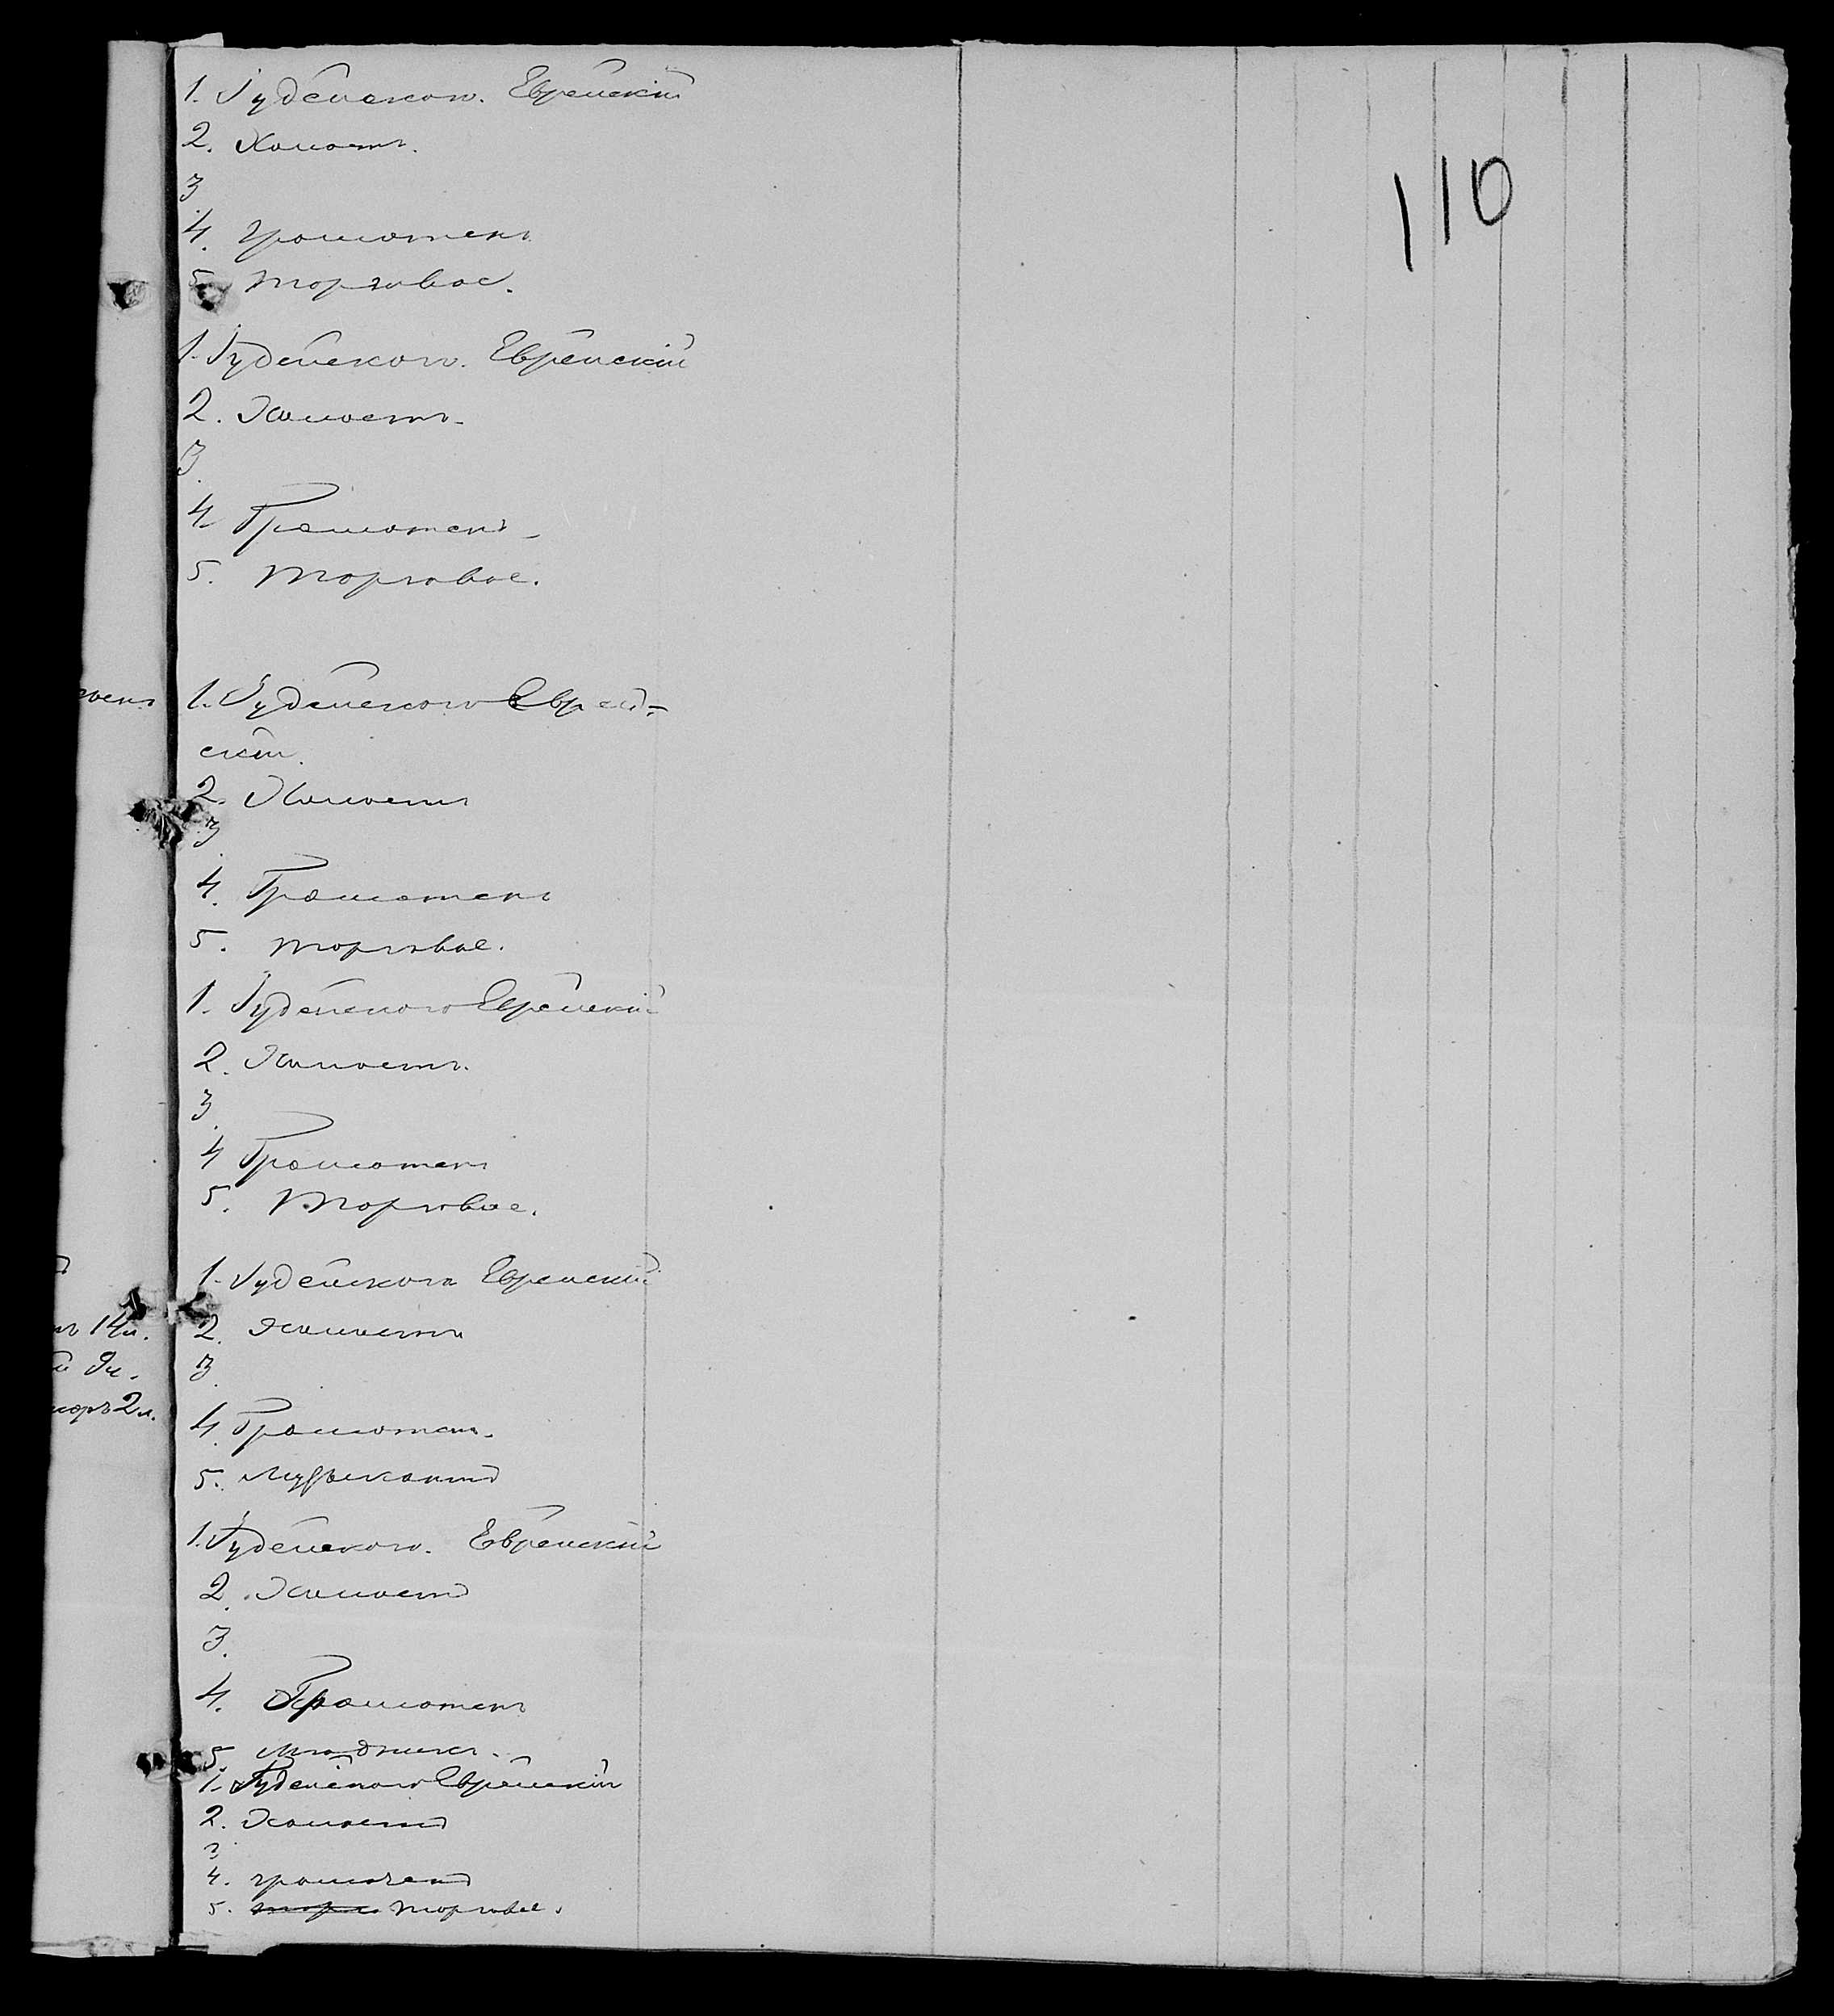 110
1. Іудейскаго. Еврейскій
2. Холостъ.
3.
4. грамотенъ
5. торговое.
1. Іудейскаго. Еврейскій
2. Холостъ.
3.
4. Грамотенъ
5. торговое.
1. Іудейскаго Еврей-
скій.
2. Холостъ
3.
4. Грамотенъ
5. торговое.
1. Іудейскаго Еврейскій
2. Холостъ.
3.
4 Грамотенъ
5. Торговое.
14 л.
9 л.
2 л.
1. Іудейскаго Еврейскій
2. Холостъ
3.
4. Грамотенъ.
5. Музыкантъ
1. Іудейскаго. Еврейскій
2. Холостъ
3.
4. Грамотенъ
5.
1. Іудейскаго Еврейскій
2. Холостъ
3
4. грамотенъ
5. торговое.